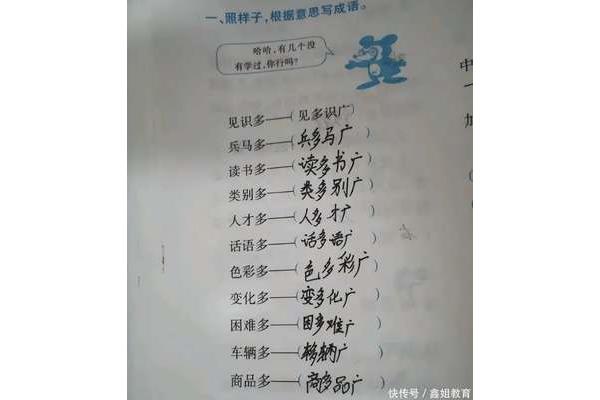 一、照样子,根据意思写成语。
哈哈,有几个没
有学过,你行吗?
中
见识多——(见多识广)
兵马多——(兵多马广)
读书多——(读多书广)
类别多——(类多别广)
人才多——(人多才广)
话语多——(话多语广)
色彩多——(色多彩广)
变化多——(变多化广)
困难多——(困多难广)
车辆多——(移辆广)
商品多——(商多品广)
快传号/鑫姐教育